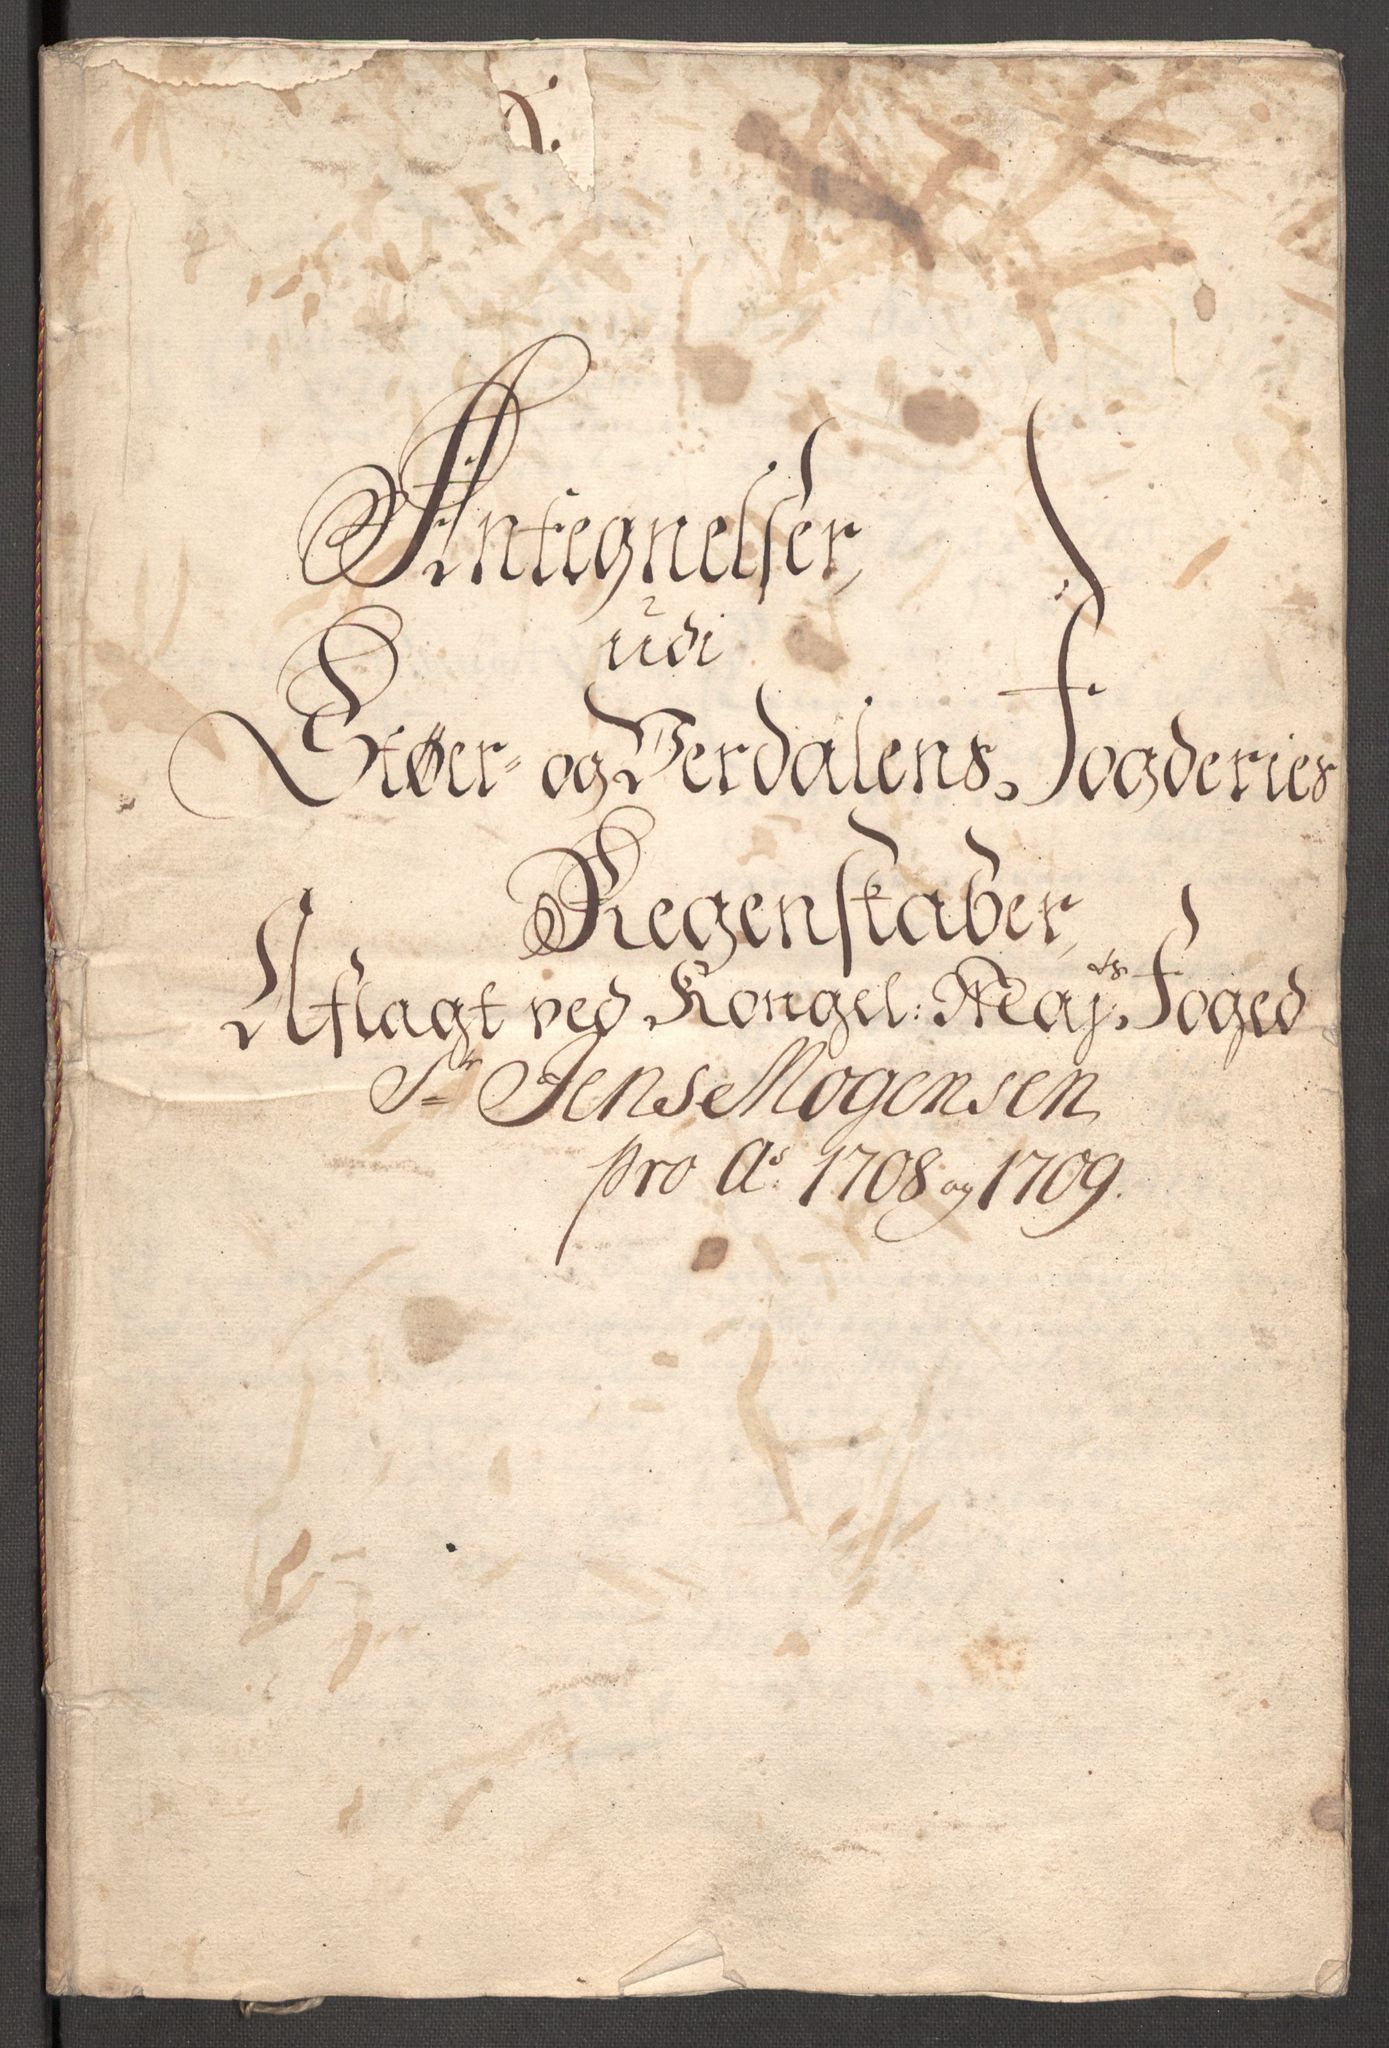 Antegnelser,
udi
Støer- og Verdalens Fogderies
Regenskaber,
Aflagt ved Kongel: Maj:ts Foged
Sr Jens Mogensen
pro Ao: 1708 og 1709.